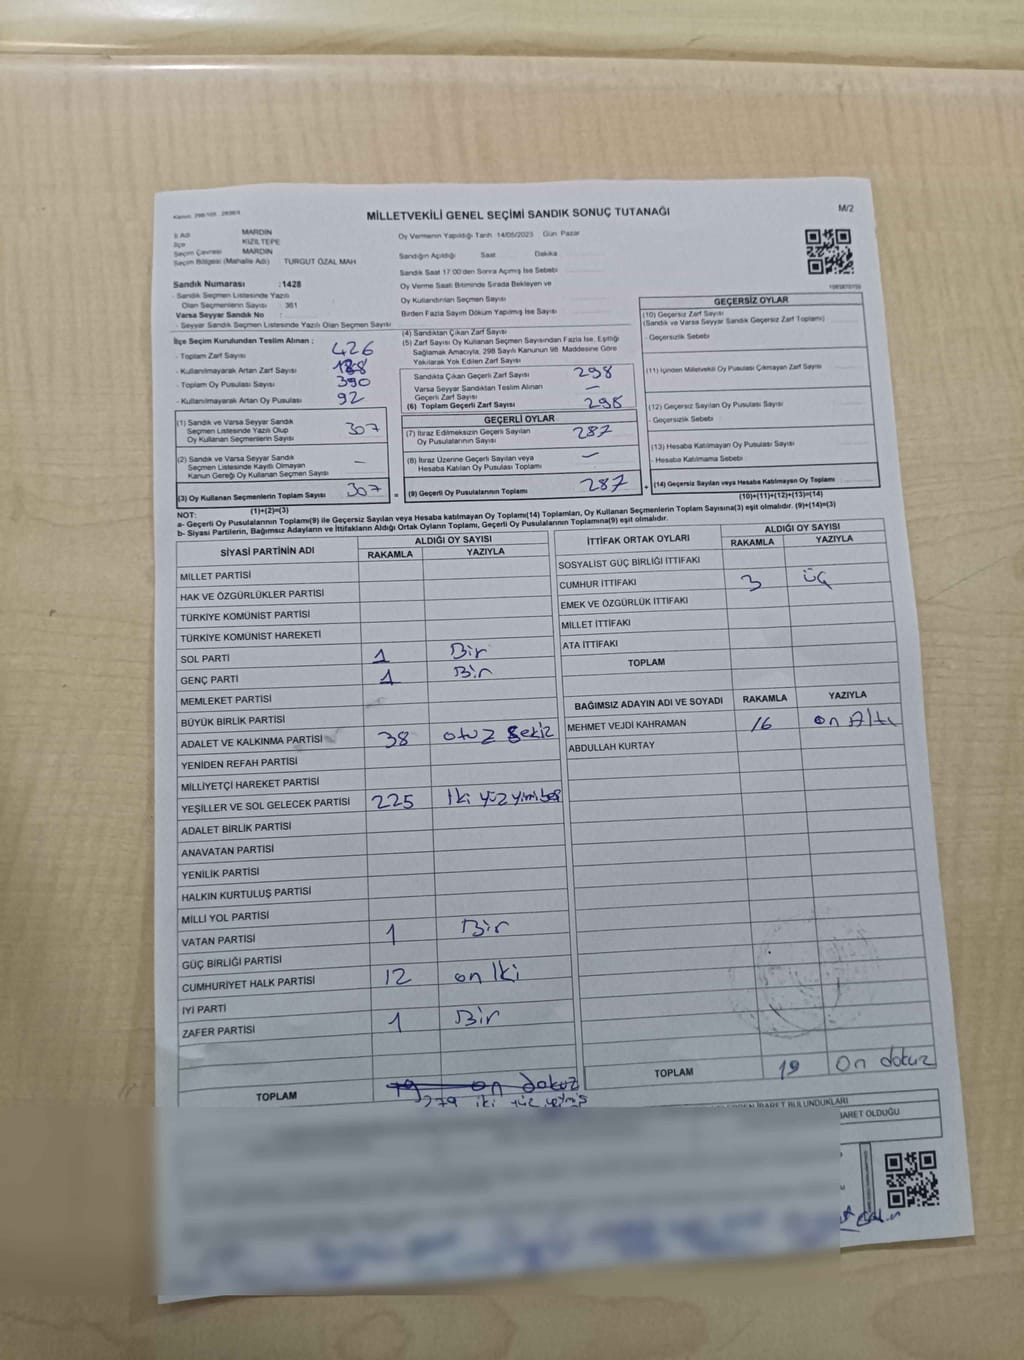 MİLLETVEKİLİ GENEL SEÇİMİ SANDIK SONUÇ TUTANAĞI
M/2
İl Adı MARDİN
İlçe KIZILTEPE
Seçim Çevresi MARDİN
Seçim Bölgesi (Mahalle Adı) TURGUT ÖZAL MAH
Oy Vermenin Yapıldığı Tarih 14/05/2023 Gün Pazar
Sandığın Açıldığı Saat Dakika
Sandık Saat 17:00'den Sonra Açımış İse Sebebi
Oy Verme Saati Bitiminde Sırada Bekleyen ve
Oy Kullandırılan Seçmen Sayısı
Birden Fazla Sayım Döküm Yapılmış İse Sayısı
Sandık Numarası :1428
- Sandık Seçmen Listesinde Yazılı
Olan Seçmenlerin Sayısı : 361
Varsa Seyyar Sandık No :
- Seyyar Sandık Seçmen Listesinde Yazılı Olan Seçmen Sayısı
İlçe Seçim Kurulundan Teslim Alınan :
- Toplam Zarf Sayısı 426
- Kullanılmayarak Artan Zarf Sayısı
- Toplam Oy Pusulası Sayısı 390
- Kullanılmayarak Artan Oy Pusulası 92
(1) Sandık ve Varsa Seyyar Sandık
Seçmen Listesinde Yazılı Olup
Oy Kullanan Seçmenlerin Sayısı 307
(2) Sandık ve Varsa Seyyar Sandık
Seçmen Listesinde Kayıtlı Olmayan
Kanun Gereği Oy Kullanan Seçmen Sayısı –
(3) Oy Kullanan Seçmenlerin Toplam Sayısı 307 =
(1)+(2)=(3)
(4) Sandıktan Çıkan Zarf Sayısı
(5) Zarf Sayısı Oy Kullanan Seçmen Sayısından Fazla İse, Eşitliği
Sağlamak Amacıyla, 298 Sayılı Kanunun 98. Maddesine Göre
Yakılarak Yok Edilen Zarf Sayısı
Sandıkta Çıkan Geçerli Zarf Sayısı 298
Varsa Seyyar Sandıktan Teslim Alınan
Geçerli Zarf Sayısı –
(6) Toplam Geçerli Zarf Sayısı 298
GEÇERLİ OYLAR
(7) İtiraz Edilmeksizin Geçerli Sayılan
Oy Pusulalarının Sayısı 287
(8) İtiraz Üzerine Geçerli Sayılan veya
Hesaba Katılan Oy Pusulası Toplamı –
(9) Geçerli Oy Pusulalarının Toplamı 287 +
GEÇERSİZ OYLAR
(10) Geçersiz Zarf Sayısı
(Sandık ve Varsa Seyyar Sandık Geçersiz Zarf Toplamı)
- Geçersizlik Sebebi
(11) İçinden Milletvekili Oy Pusulası Çıkmayan Zarf Sayısı
(12) Geçersiz Sayılan Oy Pusulası Sayısı
- Geçersizlik Sebebi
(13) Hesaba Katılmayan Oy Pusulası Sayısı
- Hesaba Katılmama Sebebi
(14) Geçersiz Sayılan veya Hesaba Katılmayan Oy Toplamı
(10)+(11)+(12)+(13)=(14)
NOT:
a- Geçerli Oy Pusulalarının Toplamı(9) ile Geçersiz Sayılan veya Hesaba katılmayan Oy Toplamı(14) Toplamları, Oy Kullanan Seçmenlerin Toplam Sayısına(3) eşit olmalıdır. (9)+(14)=(3)
b- Siyasi Partilerin, Bağımsız Adayların ve İttifakların Aldığı Ortak Oyların Toplamı, Geçerli Oy Pusulalarının Toplamına(9) eşit olmalıdır.
SİYASİ PARTİNİN ADI ALDIĞI OY SAYISI
RAKAMLA YAZIYLA
MİLLET PARTİSİ
HAK VE ÖZGÜRLÜKLER PARTİSİ
TÜRKİYE KOMÜNİST PARTİSİ
TÜRKİYE KOMÜNİST HAREKETİ
SOL PARTİ 1 Bir
GENÇ PARTİ 1 Bir
MEMLEKET PARTİSİ
BÜYÜK BİRLİK PARTİSİ
ADALET VE KALKINMA PARTİSİ 38 otuz sekiz
YENİDEN REFAH PARTİSİ
MİLLİYETÇİ HAREKET PARTİSİ
YEŞİLLER VE SOL GELECEK PARTİSİ 225 İki yüz yirmi beş
ADALET BİRLİK PARTİSİ
ANAVATAN PARTİSİ
YENİLİK PARTİSİ
HALKIN KURTULUŞ PARTİSİ
MİLLİ YOL PARTİSİ
VATAN PARTİSİ 1 Bir
GÜÇ BİRLİĞİ PARTİSİ
CUMHURİYET HALK PARTİSİ 12 on iki
İYİ PARTİ
ZAFER PARTİSİ 1 Bir
TOPLAM 19 on dokuz
279 iki yüz yetmiş
İTTİFAK ORTAK OYLARI ALDIĞI OY SAYISI
RAKAMLA YAZIYLA
SOSYALİST GÜÇ BİRLİĞİ İTTİFAKI
CUMHUR İTTİFAKI 3 üç
EMEK VE ÖZGÜRLÜK İTTİFAKI
MİLLET İTTİFAKI
ATA İTTİFAKI
TOPLAM
BAĞIMSIZ ADAYIN ADI VE SOYADI RAKAMLA YAZIYLA
MEHMET VEJDİ KAHRAMAN 16 on Altı
ABDULLAH KURTAY
TOPLAM 19 on dokuz
İBARET BULUNDUKLARI
İBARET OLDUĞU